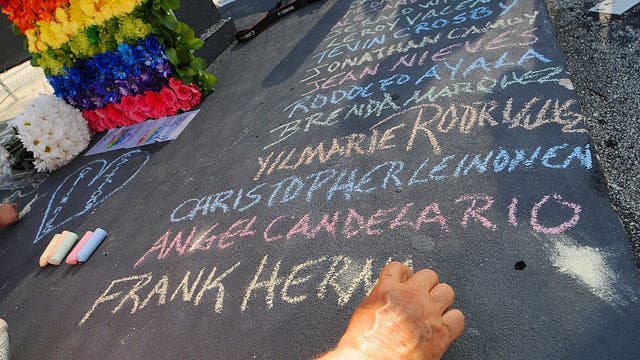 LEROY VALEN
TEVIN CROSBY
JONATHAN CAMUY
JEAN NIEVES
RODOLFO AYALA
BRENDA MARQUEZ
YILMARIE RODRIGUEZ
CHRISTOPHER LEINONEN
ANGEL CANDELARIO
FRANK HERN